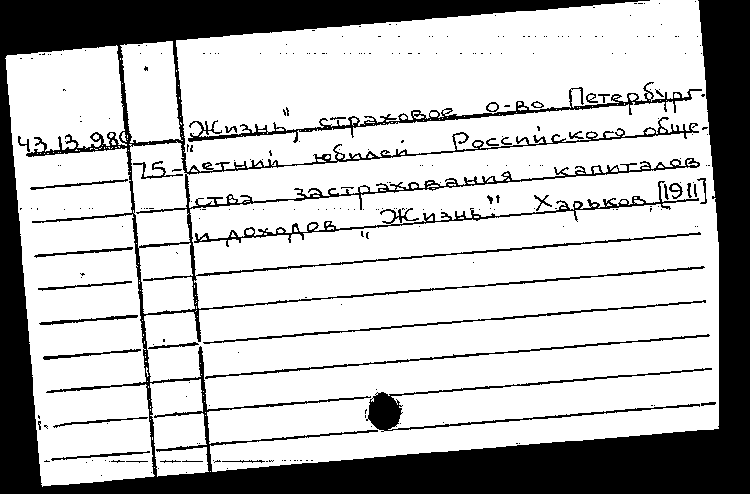 43.13.980 „Жизнь", страховое о-во. Петербург.
75-летний юбилей Российского обще-
ства застрахования капиталов
и доходов „Жизнь". Харьков, [1911].